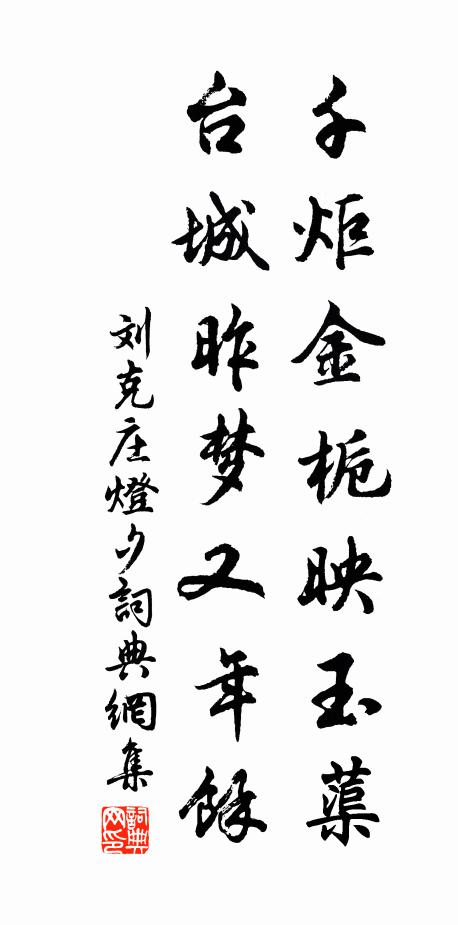 千炬金栀映玉蕖
台城昨梦又年餘
刘克庄燈夕詞典網集
詞典网印